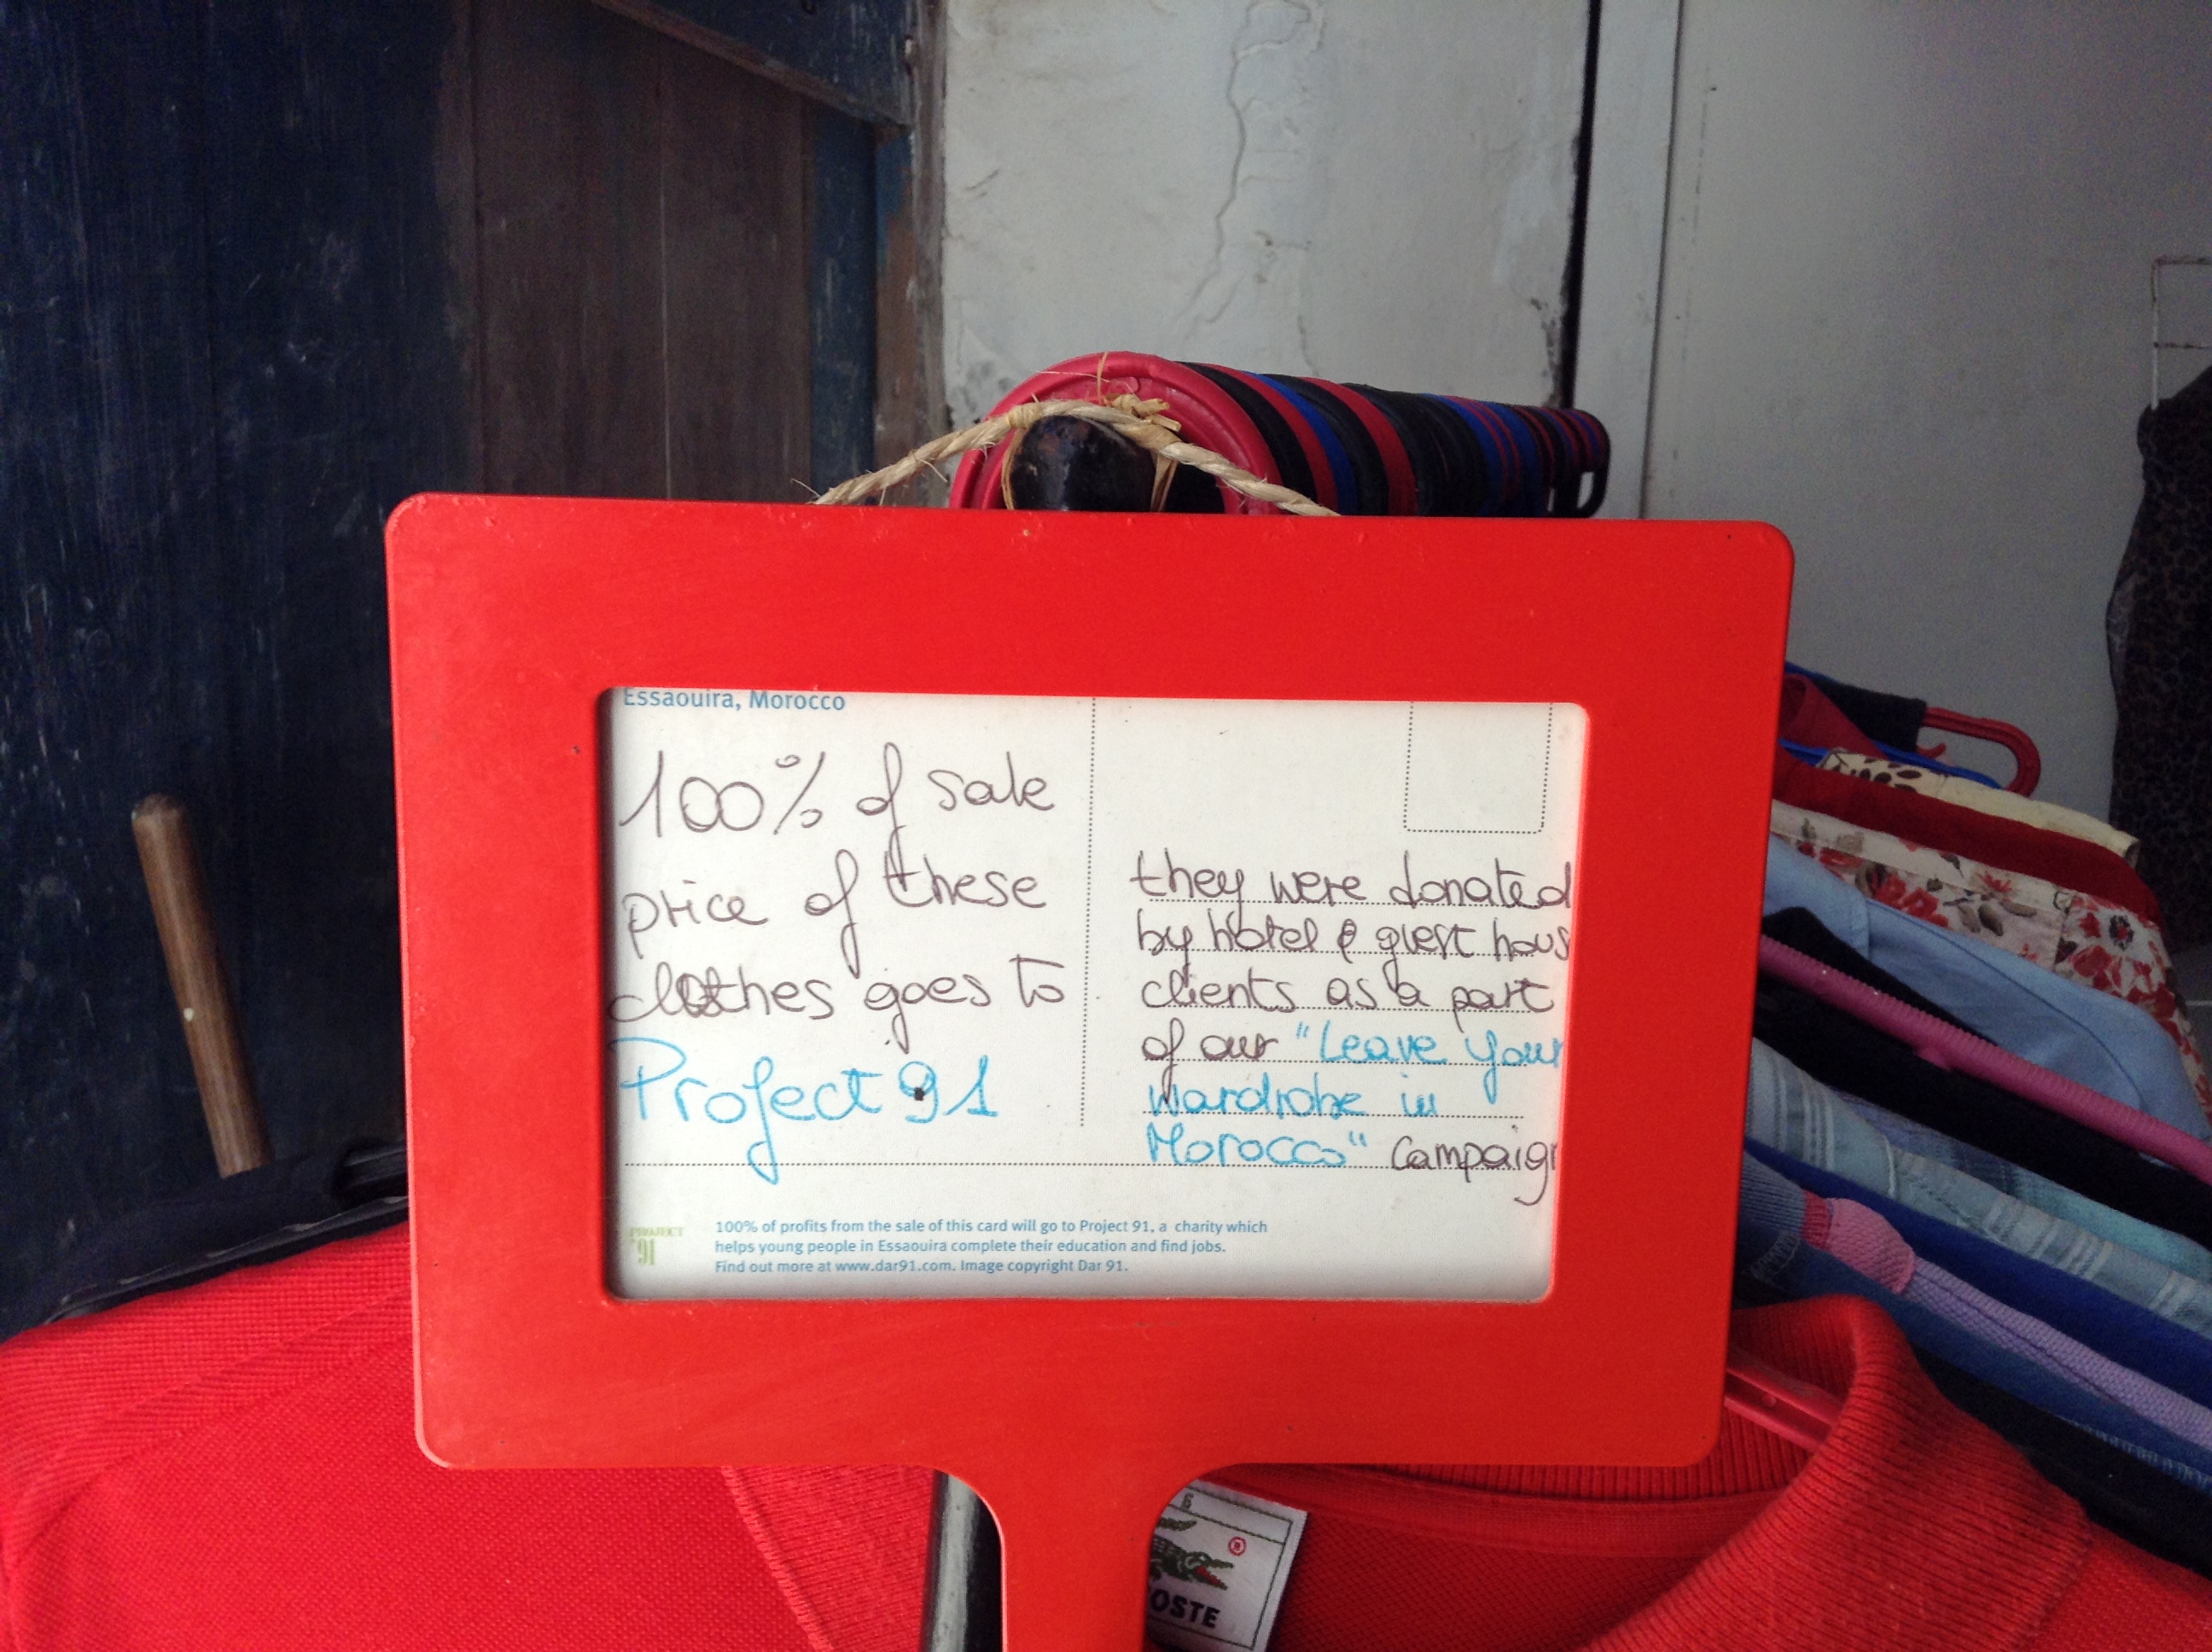 Essaouira, Morocco
100% of sale
price of these
clothes goes to
Project 91
they were donated
by hotel & guest hous
clients as a part
of our "Leave your
wardrobe in
Morocco" campaign
PROJECT
'91
100% of profits from the sale of this card will go to Project 91, a charity which
helps young people in Essaouira complete their education and find jobs.
Find out more at www.dar91.com. Image copyright Dar 91.
6
OSTE